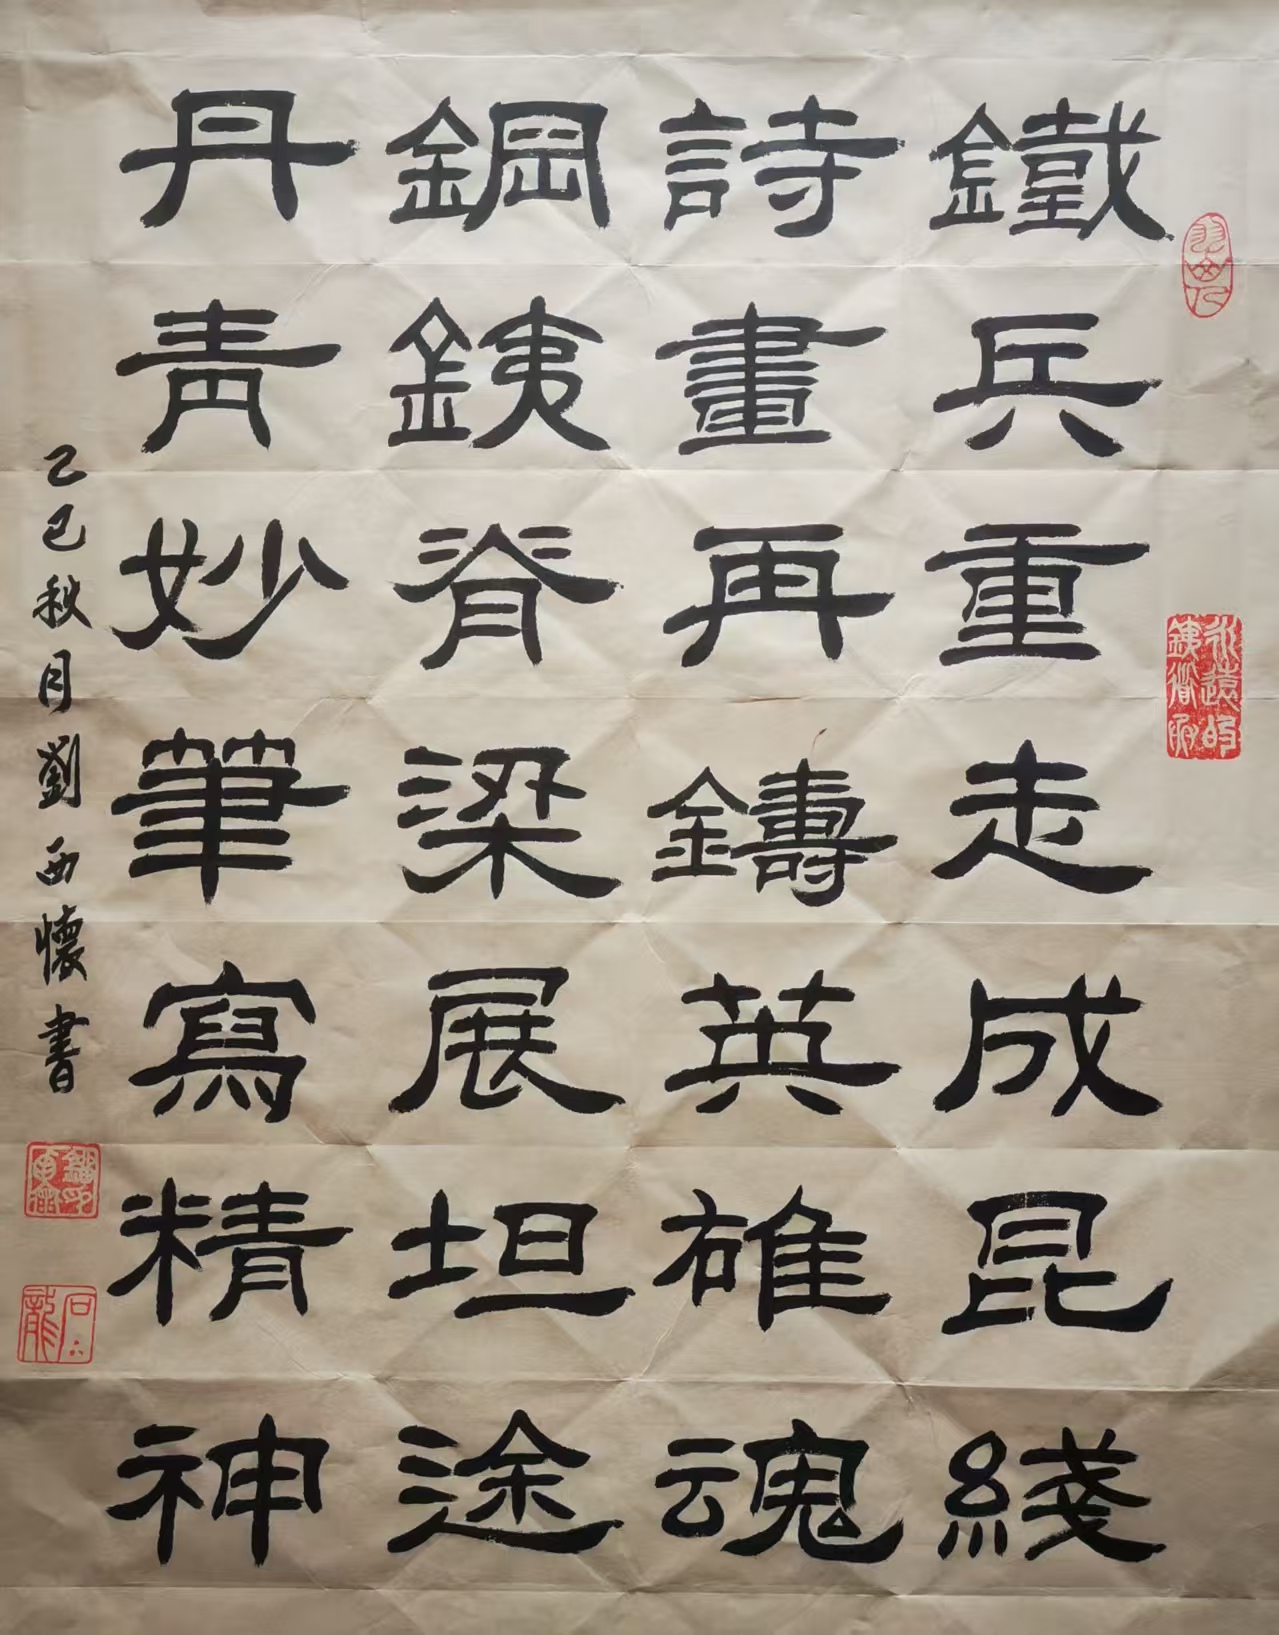 鐵兵重走成昆綫
詩畫再鑄英雄魂
鋼銕脊梁展坦途
丹青妙筆寫精神
乙巳秋月劉西懷書
永遠的
銕道兵